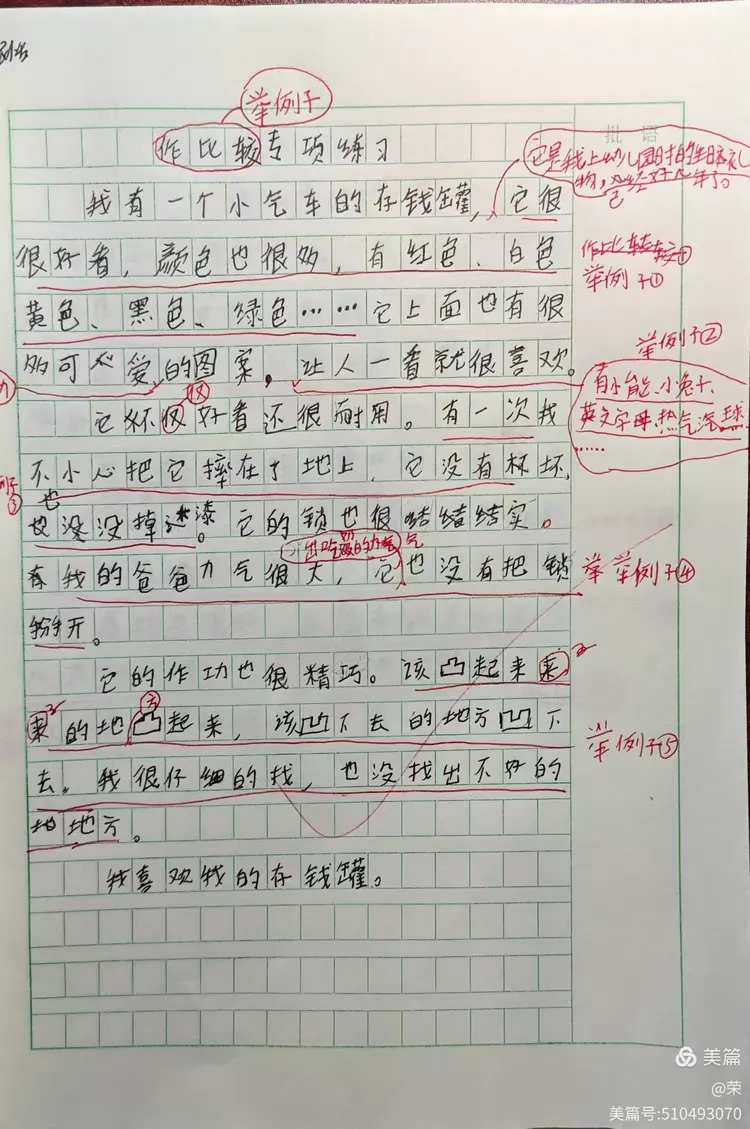 举例子
批语
作比较专项练习
它是我上幼儿园时的生日礼
物，已经好几年了。
我有一个小气车的存钱罐，它很
很好看，颜色也很多，有红色、白色
作比较
举例子①
黄色、黑色、绿色……它上面也有很
举例子②
多可心爱的图案，让人一看就很喜欢。
有小熊、小兔子、
英文字母、热气球
……
仅
它不仅好看还很耐用。有一次我
不小心把它摔在了地上，它没有坏，
也
没没掉漆。它的锁也很结结结实。
出吃奶的力气
我的爸爸力气很大，它也没有把锁
举例子④
掰开。
它的作功也很精巧。该凸起来来
方
来的地凸起来，该凹下去的地方凹下
举例子⑤
去。我很仔细的找，也没找出不好的
地地方。
我喜欢我的存钱罐。
美篇
@荣
美篇号:510493070